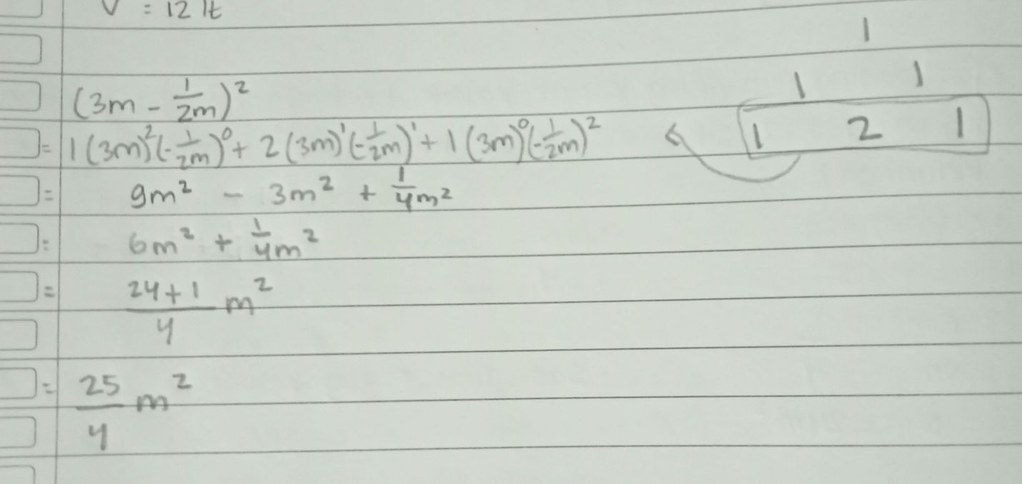 V = 12 lt
1
1 1
(3m - 1/2m)²
= 1(3m)²(-1/2m)⁰ + 2(3m)¹(-1/2m)¹ + 1(3m)⁰(-1/2m)² ← 1 2 1
= 9m² - 3m² + 1/4m²
= 6m² + 1/4m²
= 24+1/4 m²
= 25/4 m²